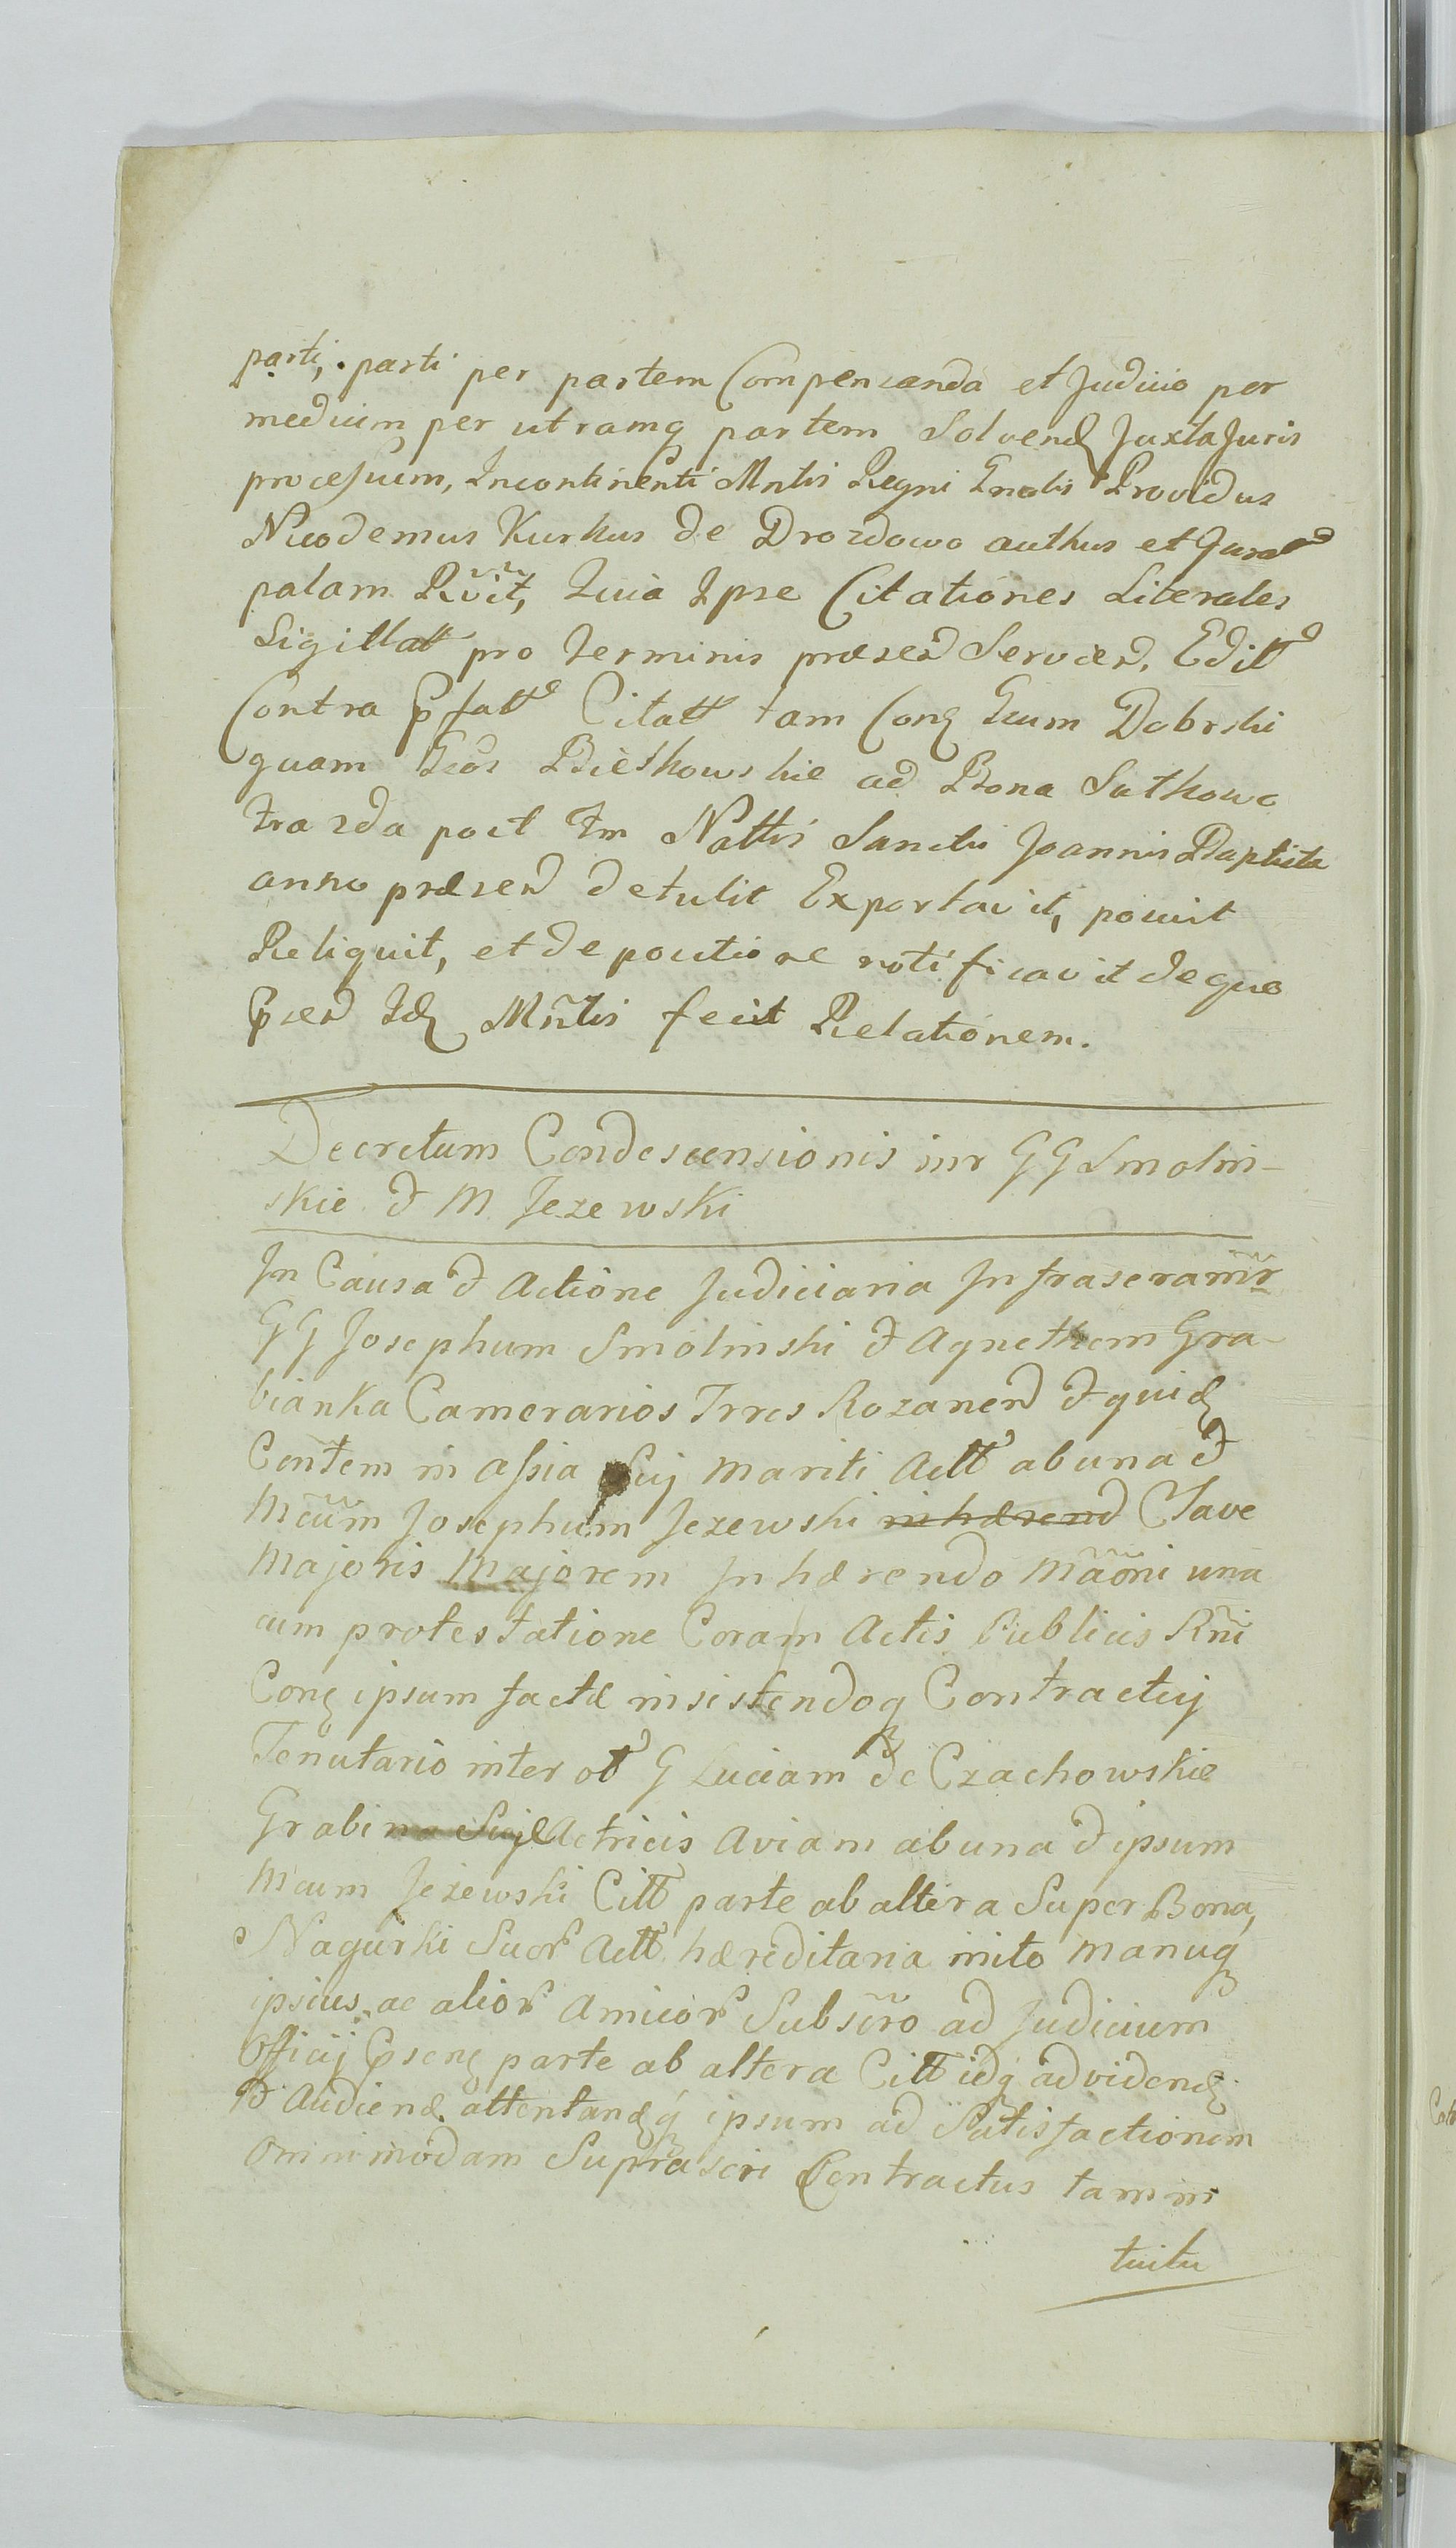 parti, parti per partem Compensanda et Judicio per
medium per utramq partem Solvend Juxta Juris
processum, Incontinenti Mntis Regni Gnalis Providus
Nicodemus Kurkus de Drozdowo authus et Jurat
palam Rvit, Quia Ipse Citationes Literales
Sigillatt pro Terminis præsend Serviend, Editt
Contra Pfatt Citatt tam Conq Gum Dobrski
quam Gos Bieśkowskie ad Bona Sutkowo
fra 2da post Fm Nattis Sancti Joannis Baptista
anno præsend detulit Exportavit, posuit
Reliquit, et de positione notificavit de quo
Psend Id Mntis fecit Relationem.
Decretum Condescensionis intr GG Smolin-
skie et M Jezewski
In Causa et Actione Judiciaria Infrascramr
GG Josephum Smolinski et Agnethem Gra-
bianka Camerarios Trres Rozanend et quid
Contem in assia Suj Mariti Actt ab una et
Mcum Josephum Jezewski inhærend Clave
Majoris Majorem Inhærendo Maoni una
cum protestatione Coram Actis Publicis Rni
Conq ipsum factæ insistendoq Contractuj
Tenutario inter ot G Luciam de Czachowskie
Grabina Suje Actricis Aviam ab una et ipsum
Mcum Jezewski Citt parte ab altera Super Bona,
Nagurki Suor Actt hæreditaria inito Manuq
ipsius ac alior Amicor Subscro ad Judicium
Officij Psens parte ab altera Citt idq ad vidend
et Audiend attentandq ipsum ad Satisfactionem
Omnimodam Suprascri Contractus tam in
tuitu